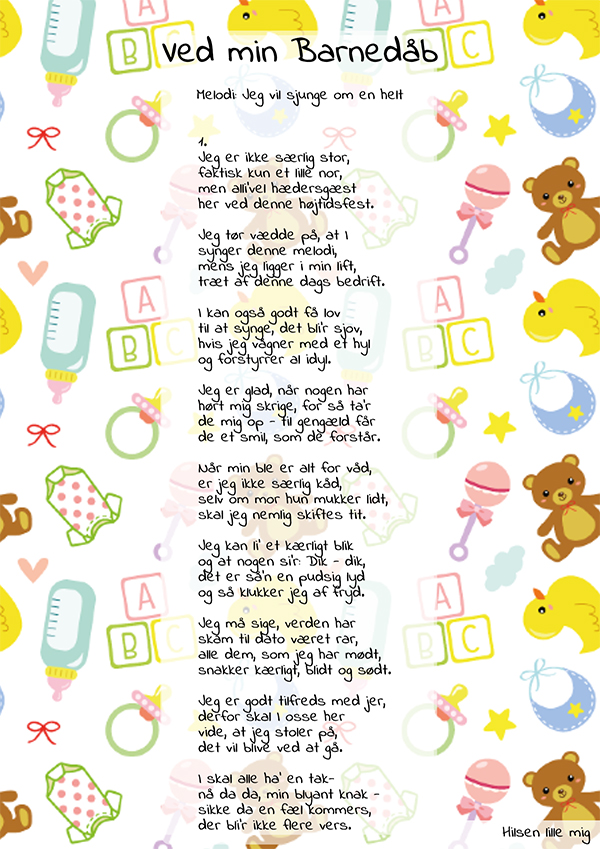 ved min Barnedåb
Melodi: Jeg vil sjunge om en helt
1.
Jeg er ikke særlig stor,
faktisk kun et lille nor,
men alli'vel hædersgæst
her ved denne højtidsfest.
Jeg tør vædde på, at I
synger denne melodi,
mens jeg ligger i min lift,
træt af denne dags bedrift.
I kan også godt få lov
til at synge, det bli'r sjov,
hvis jeg vågner med et hyl
og forstyrrer al idyl.
Jeg er glad, når nogen har
hørt mig skrige, for så ta'r
de mig op - til gengæld får
de et smil, som de forstår.
Når min ble er alt for våd,
er jeg ikke særlig kåd,
selv om mor hun mukker lidt,
skal jeg nemlig skiftes tit.
Jeg kan li' et kærligt blik
og at nogen si'r: Dik - dik,
det er så'n en pudsig lyd
og så klukker jeg af fryd.
Jeg må sige, verden har
skam til dato været rar,
alle dem, som jeg har mødt,
snakker kærligt, blidt og sødt.
Jeg er godt tilfreds med jer,
derfor skal I osse her
vide, at jeg stoler på,
det vil blive ved at gå.
I skal alle ha' en tak-
nå da da, min blyant knak -
sikke da en fæl kommers,
der bli'r ikke flere vers.
Hilsen lille mig
A
B
C
A
B
C
A
B
C
A
B
C
A
B
C
A
B
C